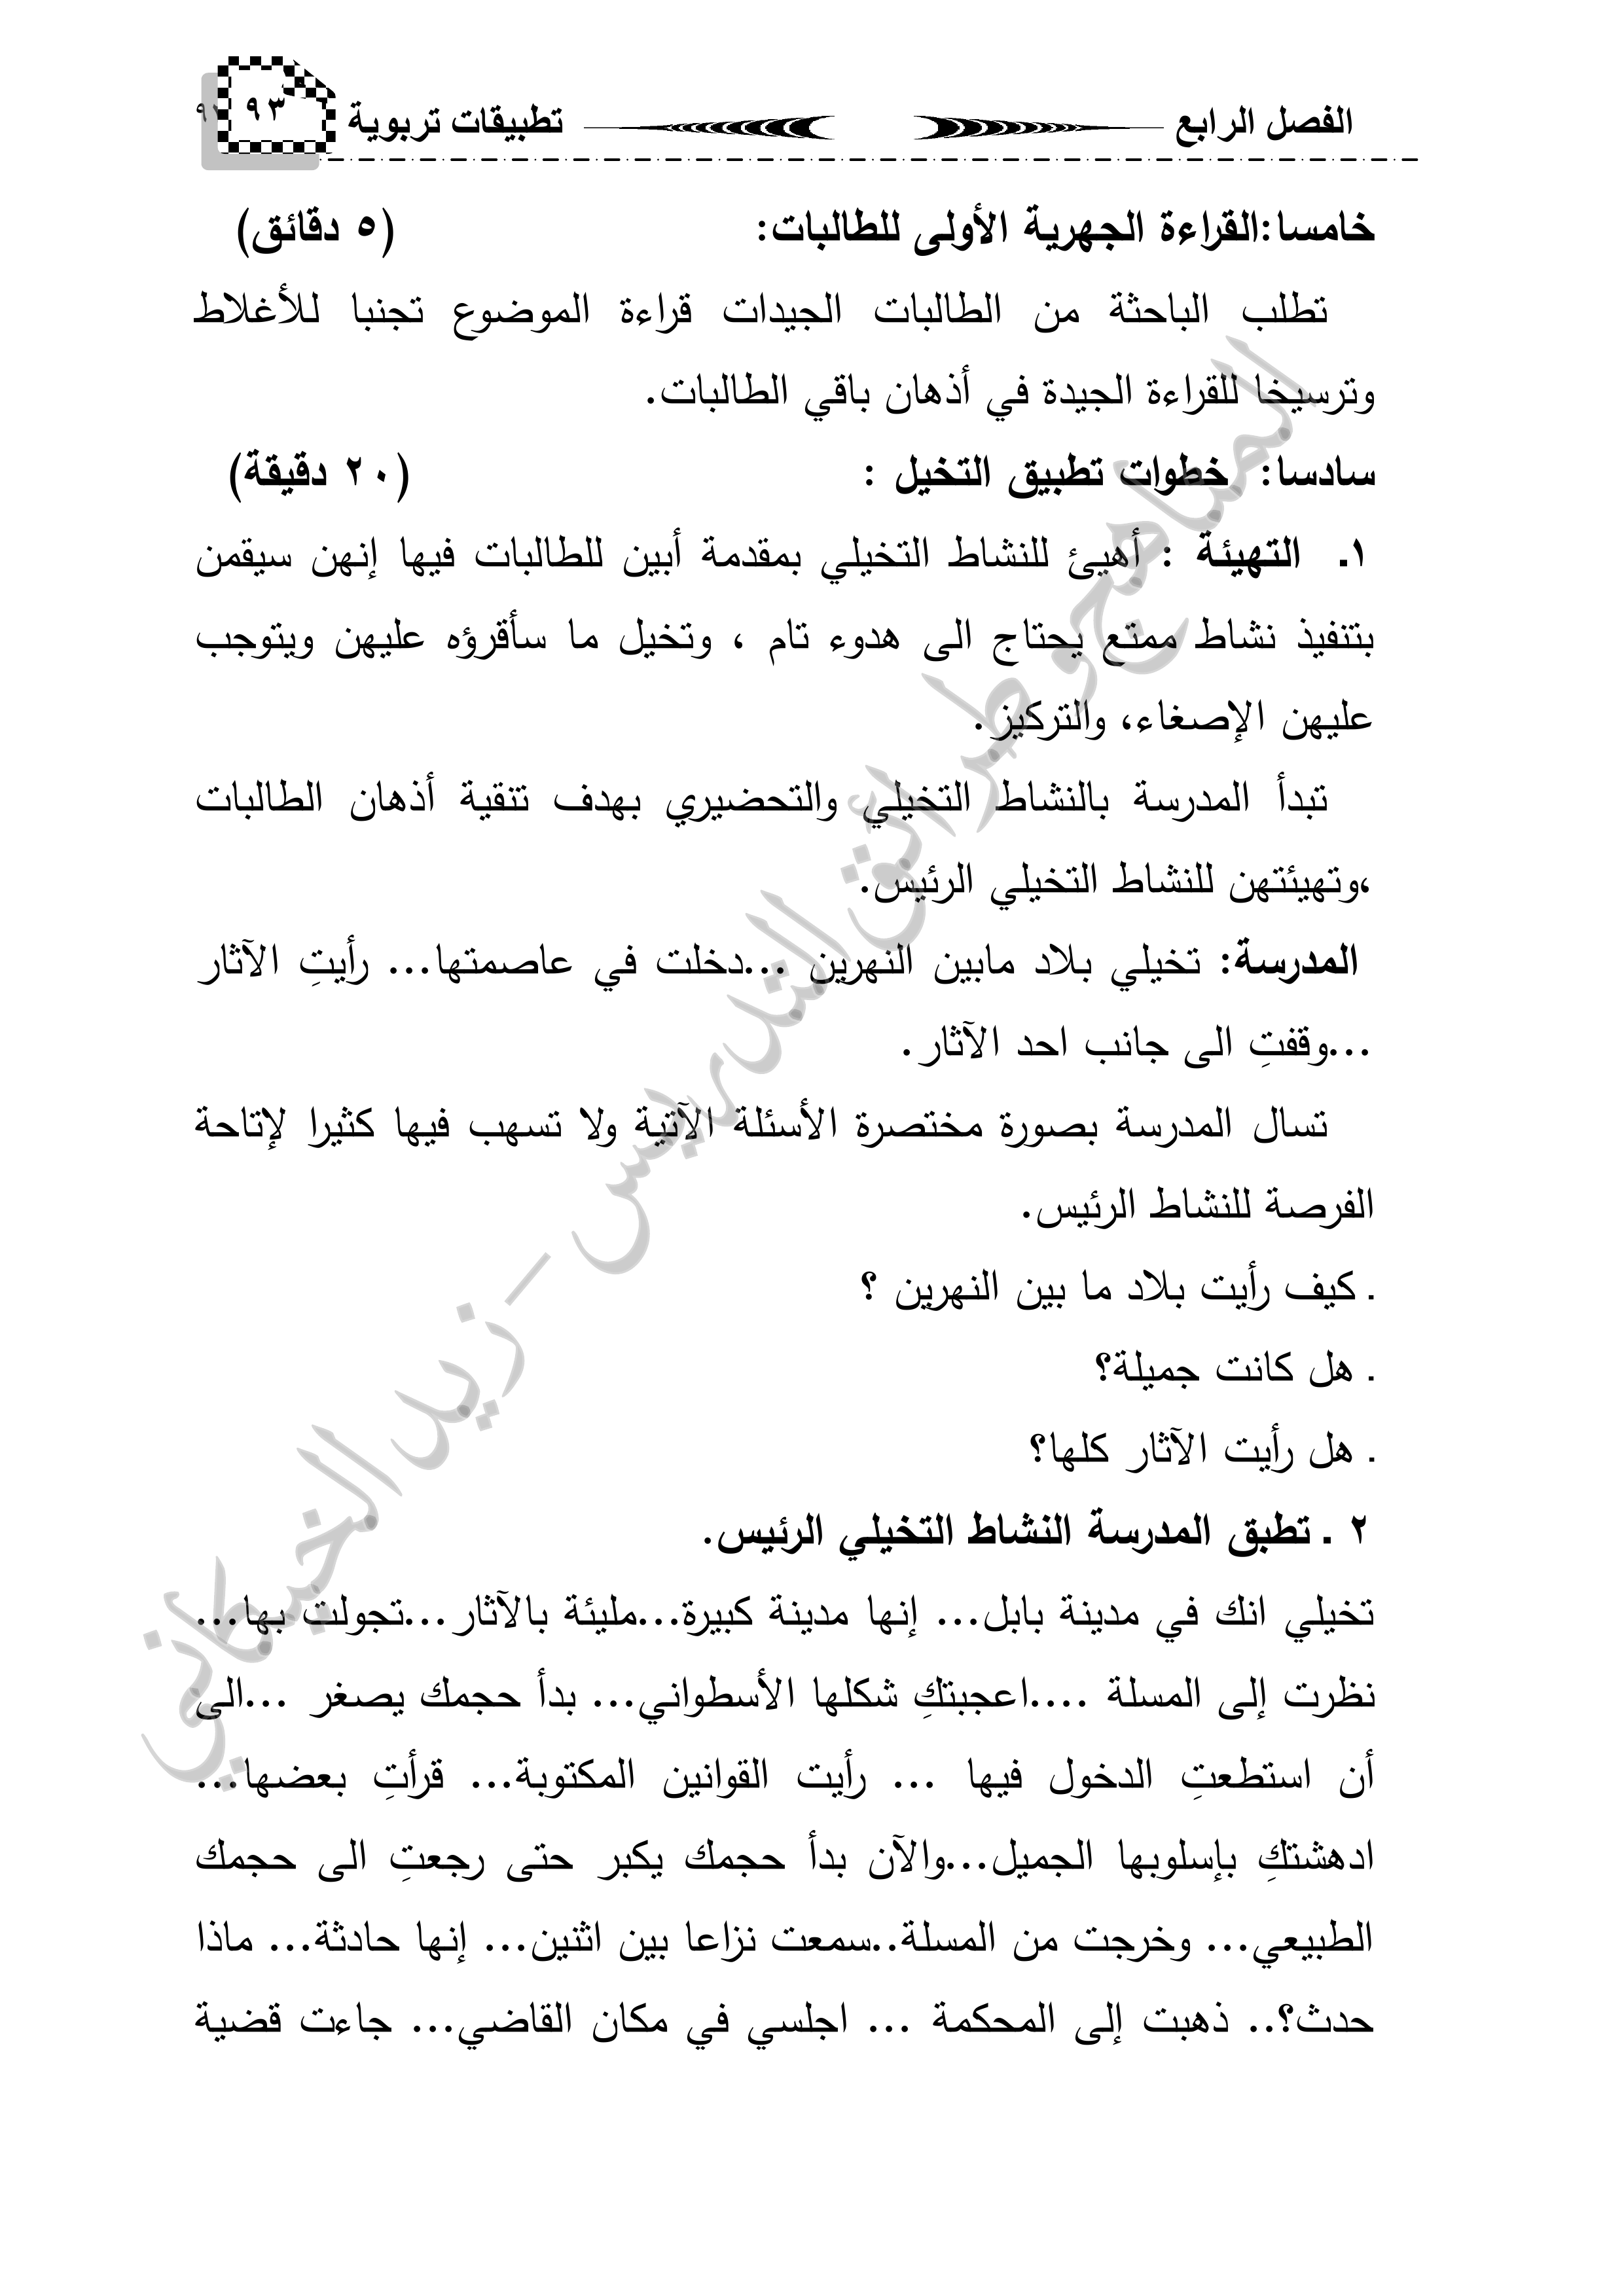 الفصل الرابع تطبيقات تربوية ٩٣
خامسا:القراءة الجهرية الأولى للطالبات: (٥ دقائق)
تطلب الباحثة من الطالبات الجيدات قراءة الموضوع تجنبا للأغلاط
وترسيخا للقراءة الجيدة في أذهان باقي الطالبات.
سادسا: خطوات تطبيق التخيل : (٢٠ دقيقة)
١. التهيئة : أهيئ للنشاط التخيلي بمقدمة أبين للطالبات فيها إنهن سيقمن
بتنفيذ نشاط ممتع يحتاج الى هدوء تام ، وتخيل ما سأقرؤه عليهن ويتوجب
عليهن الإصغاء، والتركيز.
تبدأ المدرسة بالنشاط التخيلي والتحضيري بهدف تنقية أذهان الطالبات
،وتهيئتهن للنشاط التخيلي الرئيس.
المدرسة: تخيلي بلاد مابين النهرين ...دخلت في عاصمتها... رأيتِ الآثار
...وقفتِ الى جانب احد الآثار.
تسال المدرسة بصورة مختصرة الأسئلة الآتية ولا تسهب فيها كثيرا لإتاحة
الفرصة للنشاط الرئيس.
. كيف رأيت بلاد ما بين النهرين ؟
. هل كانت جميلة؟
. هل رأيت الآثار كلها؟
٢ . تطبق المدرسة النشاط التخيلي الرئيس.
تخيلي انك في مدينة بابل... إنها مدينة كبيرة...مليئة بالآثار...تجولت بها...
نظرت إلى المسلة ....اعجبتكِ شكلها الأسطواني... بدأ حجمك يصغر ...الى
أن استطعتِ الدخول فيها ... رأيت القوانين المكتوبة... قرأتِ بعضها...
ادهشتكِ بإسلوبها الجميل...والآن بدأ حجمك يكبر حتى رجعتِ الى حجمك
الطبيعي... وخرجت من المسلة..سمعت نزاعا بين اثنين... إنها حادثة... ماذا
حدث؟.. ذهبت إلى المحكمة ... اجلسي في مكان القاضي... جاءت قضية
المناهج وطرائق التدريس - زيد الخيكاني